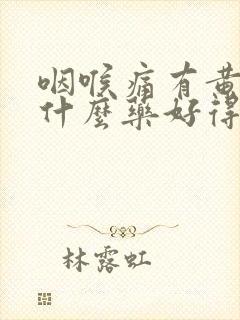 咽喉痛有黄
什麼藥好得
林露虹